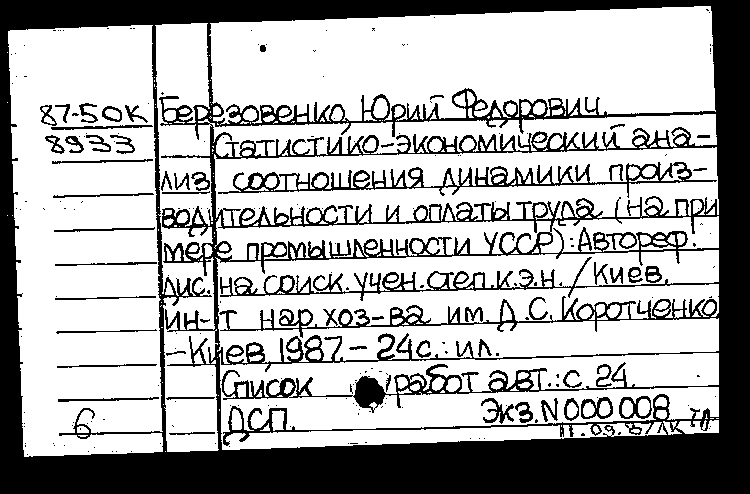 87-50К Березовенко, Юрий Федорович.
8933 Статистико-экономический ана-
лиз соотношения динамики произ-
водительности и оплаты труда (на при
мере промышленности УССР): Автореф.
дис. на соиск. учен. степ. к.э.н. / Киев.
ин-т нар. хоз-ва им. Д. С. Коротченко
- Киев, 1987. - 24 с.: ил.
Список работ авт.: с. 24.
6 ДСП. Экз. N 000 008
11.09.87